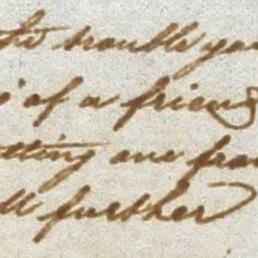 to trouble you
of a friend
getting one from
will further